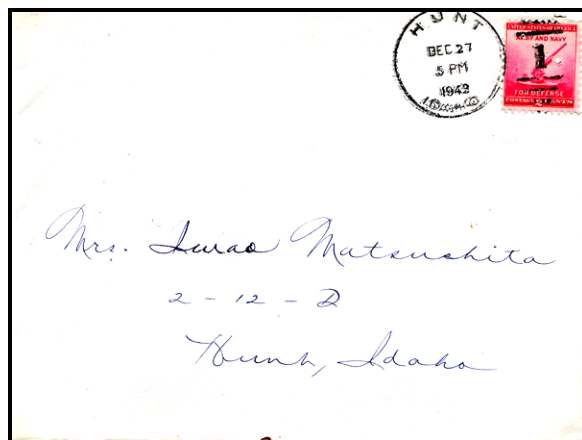 HUNT
DEC 27
5 PM
1942
IDAHO
UNITED STATES OF AMERICA
ARMY AND NAVY
1
FOR DEFENSE
POSTAGE 2 CENTS
Mrs. Iwao Matsushita
2-12-D
Hunt, Idaho